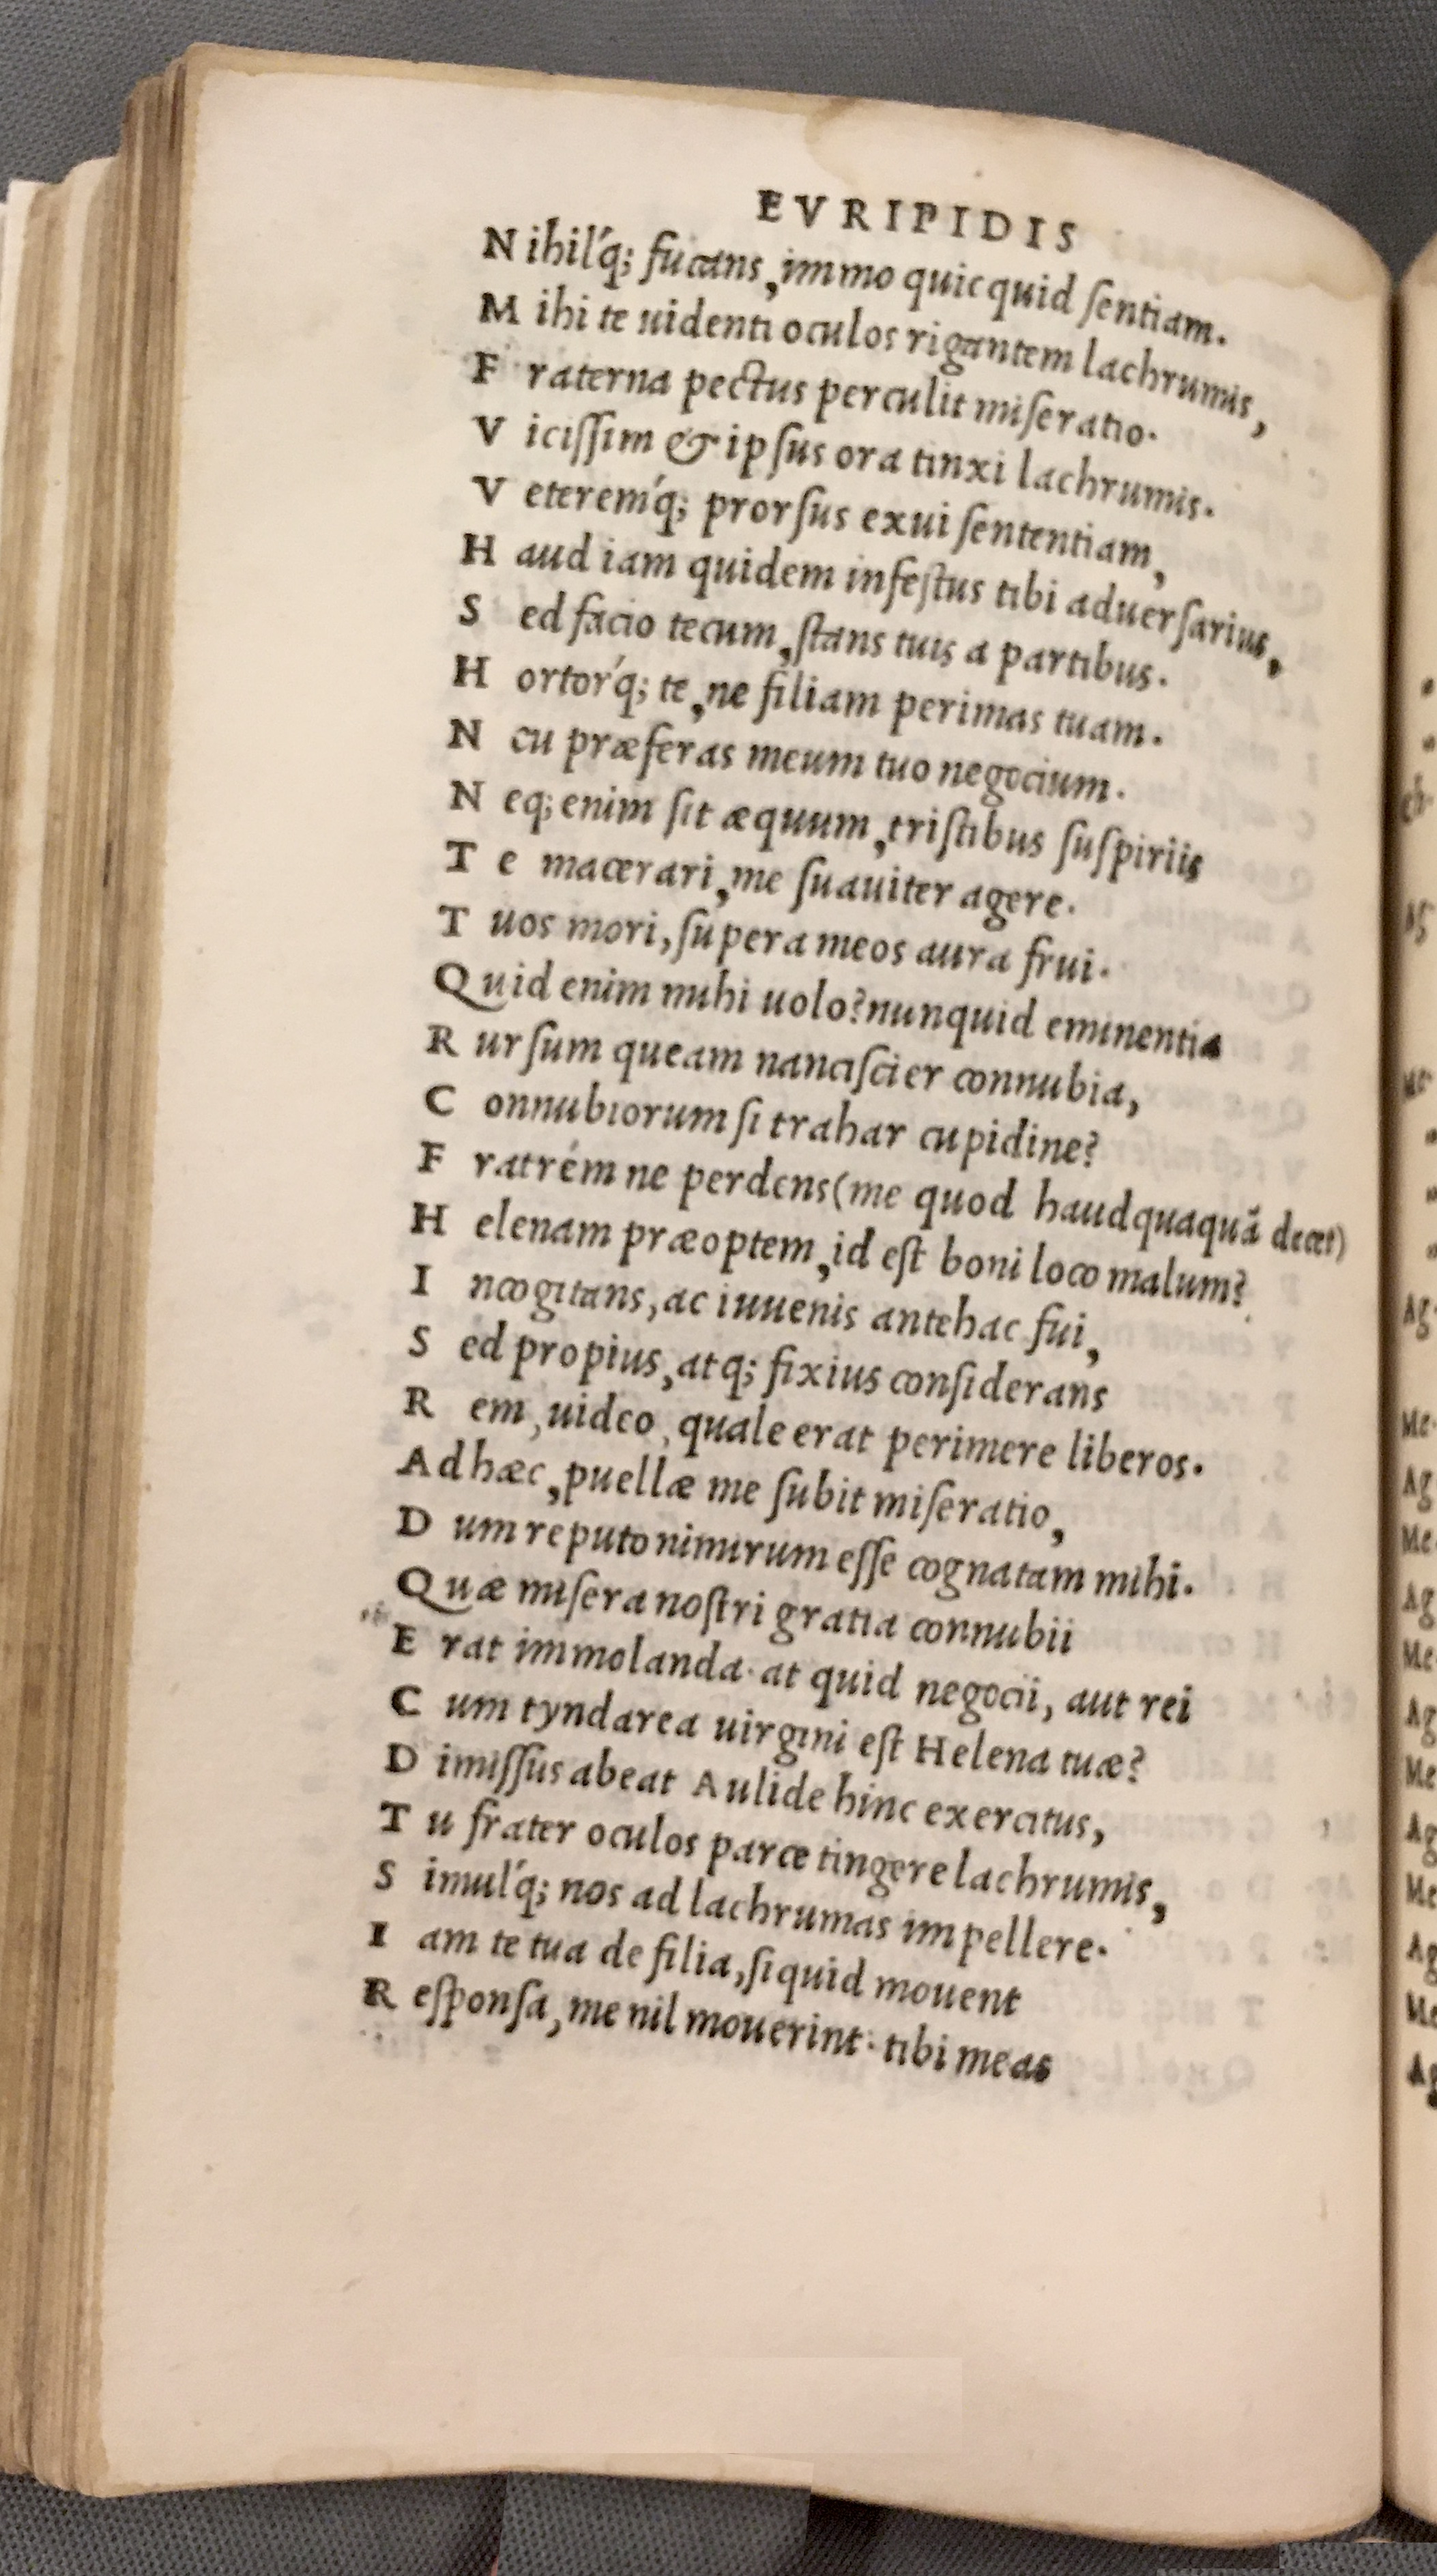 EVRIPIDIS
Nihilq́; fucans, immo quicquid ſentiam.
Mihi te uidenti oculos rigantem lachrumis,
Fraterna pectus perculit miſeratio.
Viciſſim & ipſus ora tinxi lachrumis.
Veteremq́; prorſus exui ſententiam,
Haud iam quidem infeſtus tibi aduerſarius,
Sed facio tecum, ſtans tuis a partibus.
Hortorq́; te, ne filiam perimas tuam.
Neu præferas meum tuo negocium.
Neq; enim ſit æquum, triſtibus ſuſpiriis
Te macerari, me ſuauiter agere.
Tuos mori, ſupera meos aura frui.
Quid enim mihi uolo? nunquid eminentia
Rurſum queam nanciſcier connubia,
Connubiorum ſi trahar cupidine?
Fratrém ne perdens (me quod haudquaquã decet)
Helenam præoptem, id eſt boni loco malum?
Incogitans, ac iuuenis antehac fui,
Sed propius, atq; fixius conſiderans
Rem, uideo, quale erat perimere liberos.
Ad hæc, puellæ me ſubit miſeratio,
Dum reputo nimirum eſſe cognatam mihi.
Quæ miſera noſtri gratia connubii
Erat immolanda. at quid negocii, aut rei
Cum tyndarea uirgini eſt Helena tuæ?
Dimiſſus abeat Aulide hinc exercitus,
Tu frater oculos parce tingere lachrumis,
Simulq́; nos ad lachrumas impellere.
Iam te tua de filia, ſi quid mouent
Reſponſa, me nil mouerint. tibi meas
Ag
Me
Ag
Me
Ag
Me
Ag
Me
Ag
Me
Ag
Me
Ag
Me
Ag